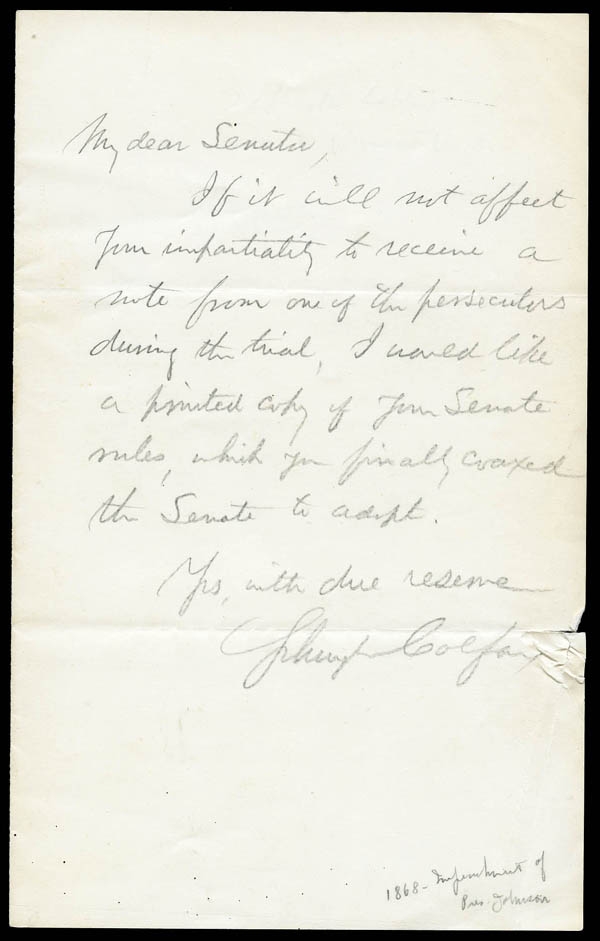 My dear Senator,
If it will not affect
your impartiality to receive a
note from one of the persecutors
during the trial, I would like
a printed copy of your Senate
rules, which you finally coaxed
the Senate to adopt.
Yrs, with due reserve
Schuyler Colfax
1868 - Impeachment of
Pres. Johnson